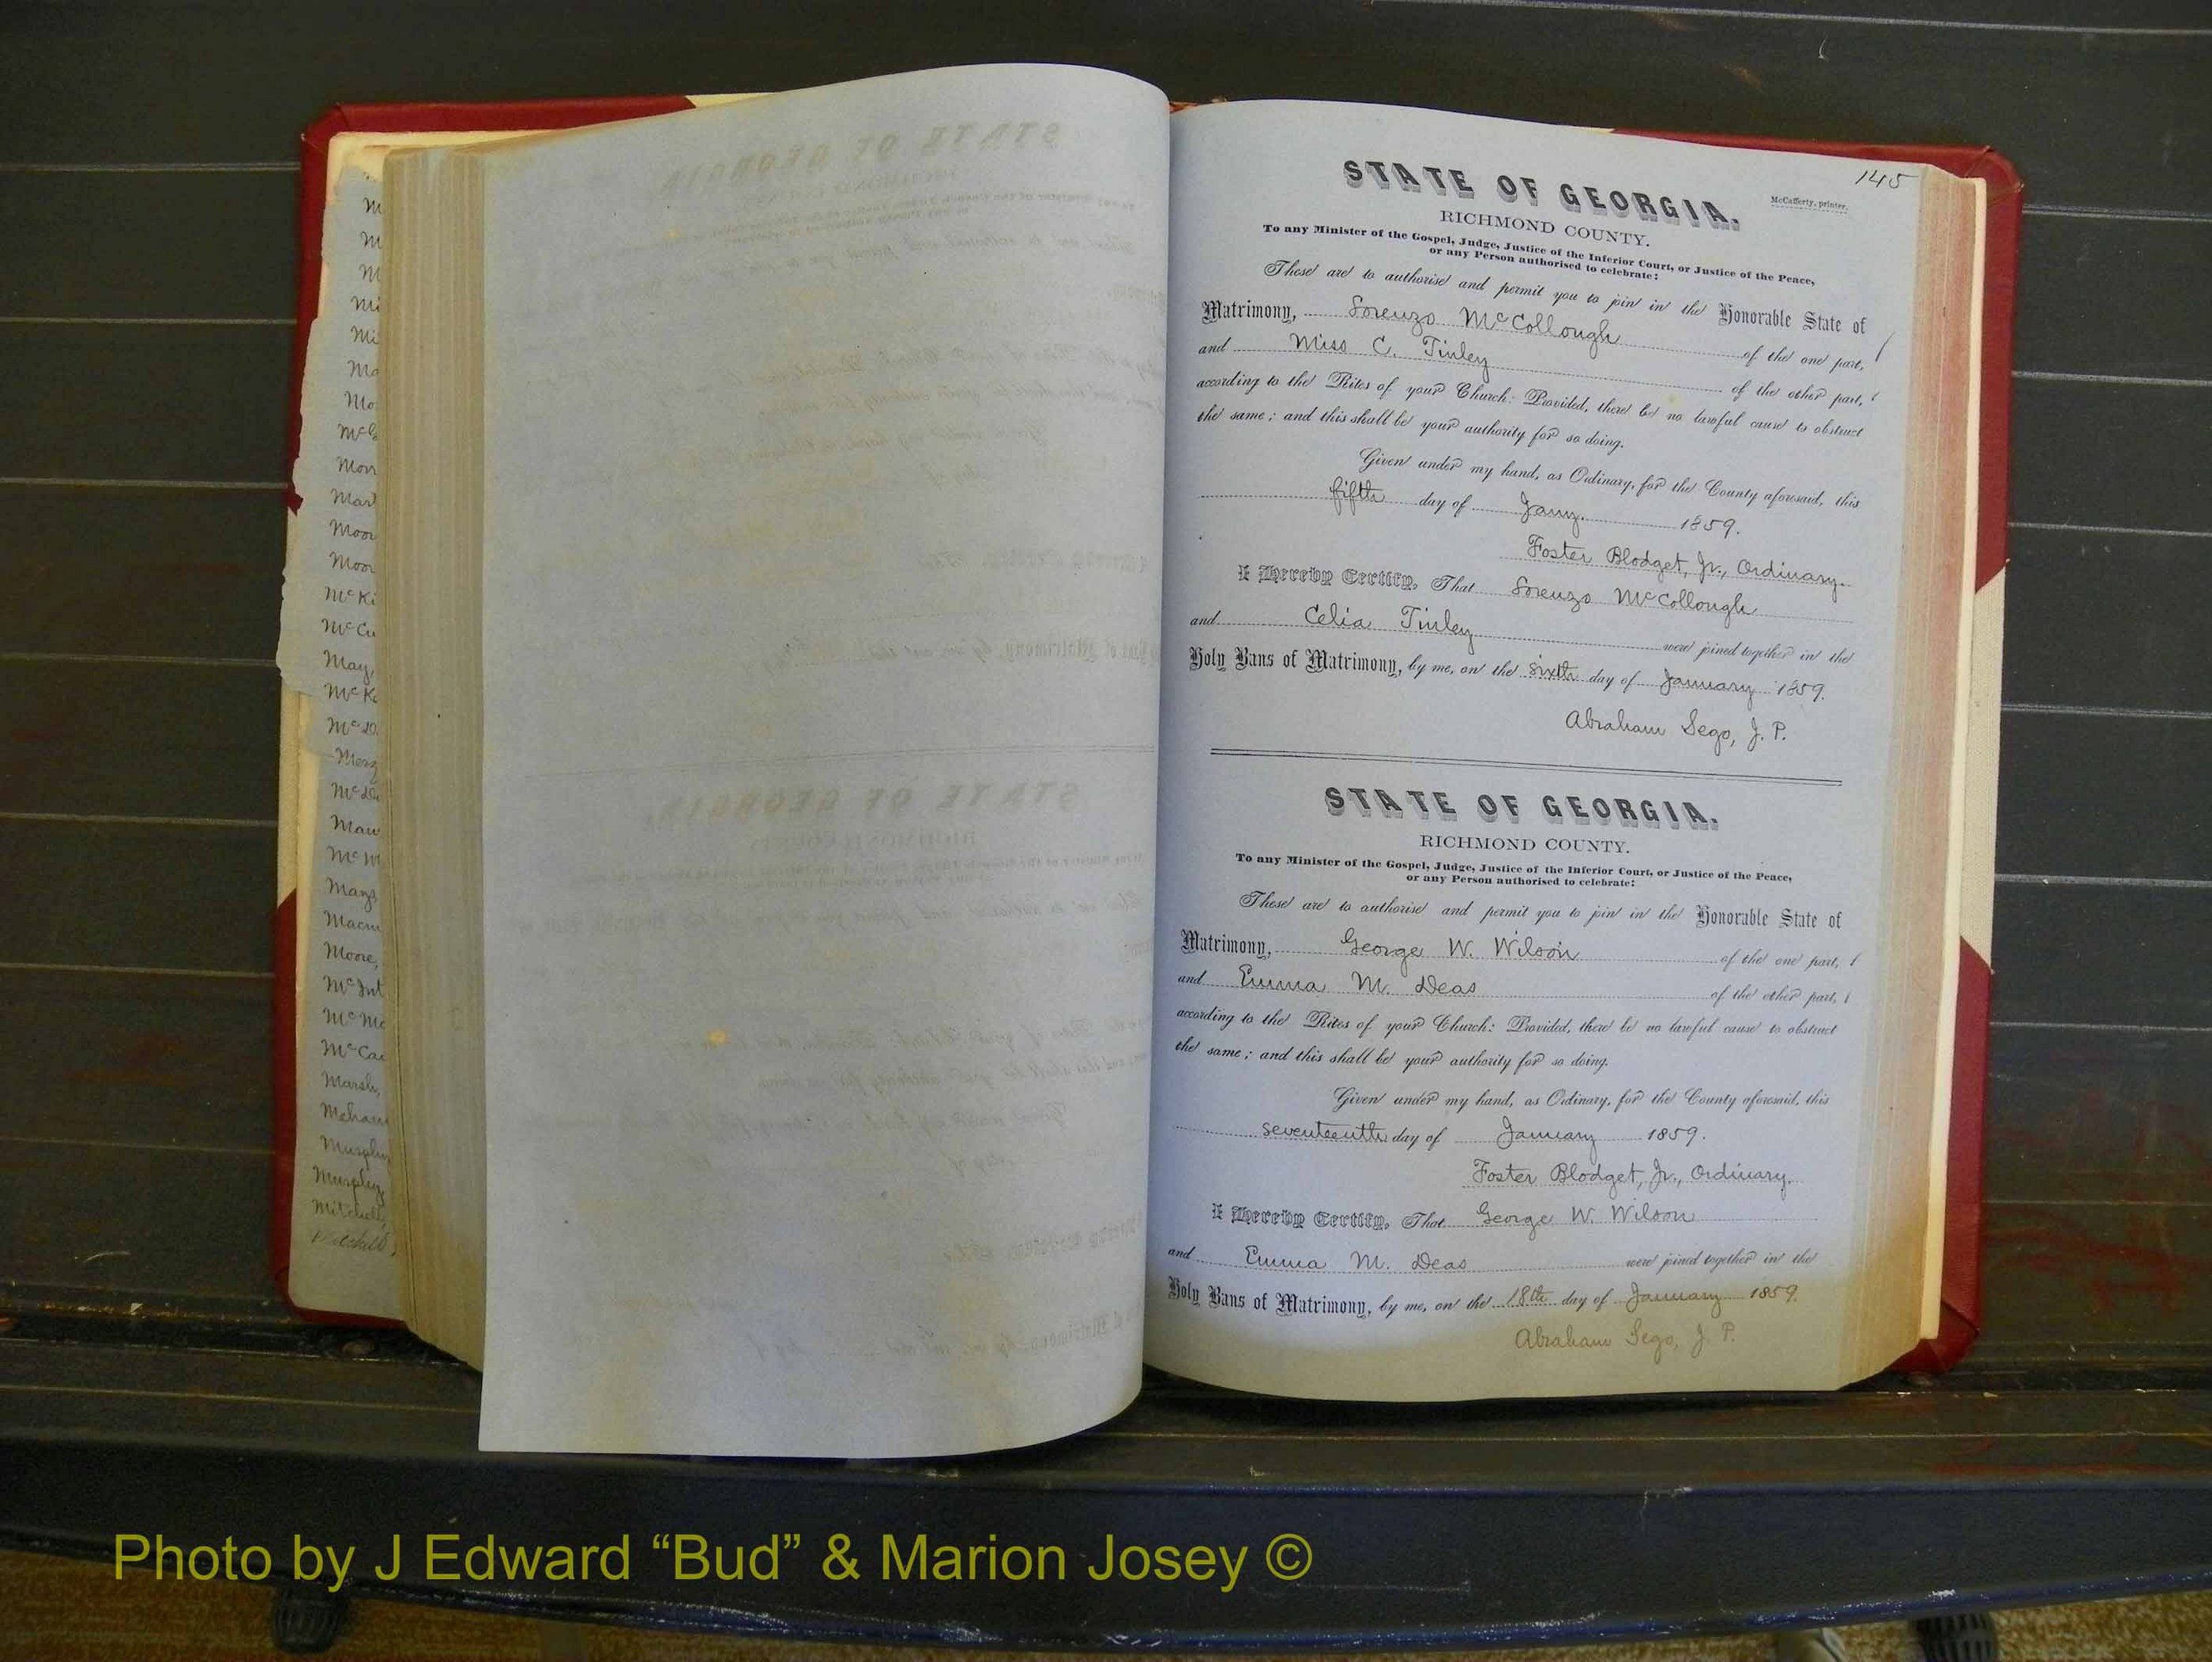 145
STATE OF GEORGIA.
McCafferty, printer.
RICHMOND COUNTY.
To any Minister of the Gospel, Judge, Justice of the Inferior Court, or Justice of the Peace,
or any Person authorised to celebrate:
These are to authorise and permit you to join in the Honorable State of
Matrimony, Lorenzo McCollough of the one part,
and Miss C. Tinley of the other part,
according to the Rites of your Church: Provided, there be no lawful cause to obstruct
the same; and this shall be your authority for so doing.
Given under my hand, as Ordinary, for the County aforesaid, this
fifth day of Jany. 1859.
Foster Blodget, Jr., Ordinary.
I Hereby Certify, That Lorenzo McCollough
and Celia Tinley were joined together in the
Holy Bans of Matrimony, by me, on the sixth day of January 1859.
Abraham Sego, J. P.
STATE OF GEORGIA.
RICHMOND COUNTY.
To any Minister of the Gospel, Judge, Justice of the Inferior Court, or Justice of the Peace,
or any Person authorised to celebrate:
These are to authorise and permit you to join in the Honorable State of
Matrimony, George W. Wilson of the one part,
and Emma M. Deas of the other part,
according to the Rites of your Church: Provided, there be no lawful cause to obstruct
the same; and this shall be your authority for so doing.
Given under my hand, as Ordinary, for the County aforesaid, this
seventeenth day of January 1859.
Foster Blodget, Jr., Ordinary.
I Hereby Certify, That George W. Wilson
and Emma M. Deas were joined together in the
Holy Bans of Matrimony, by me, on the 18th day of January 1859.
Abraham Sego, J. P.
Moore,
Marsh,
Mitchell,
Photo by J Edward “Bud” & Marion Josey ©